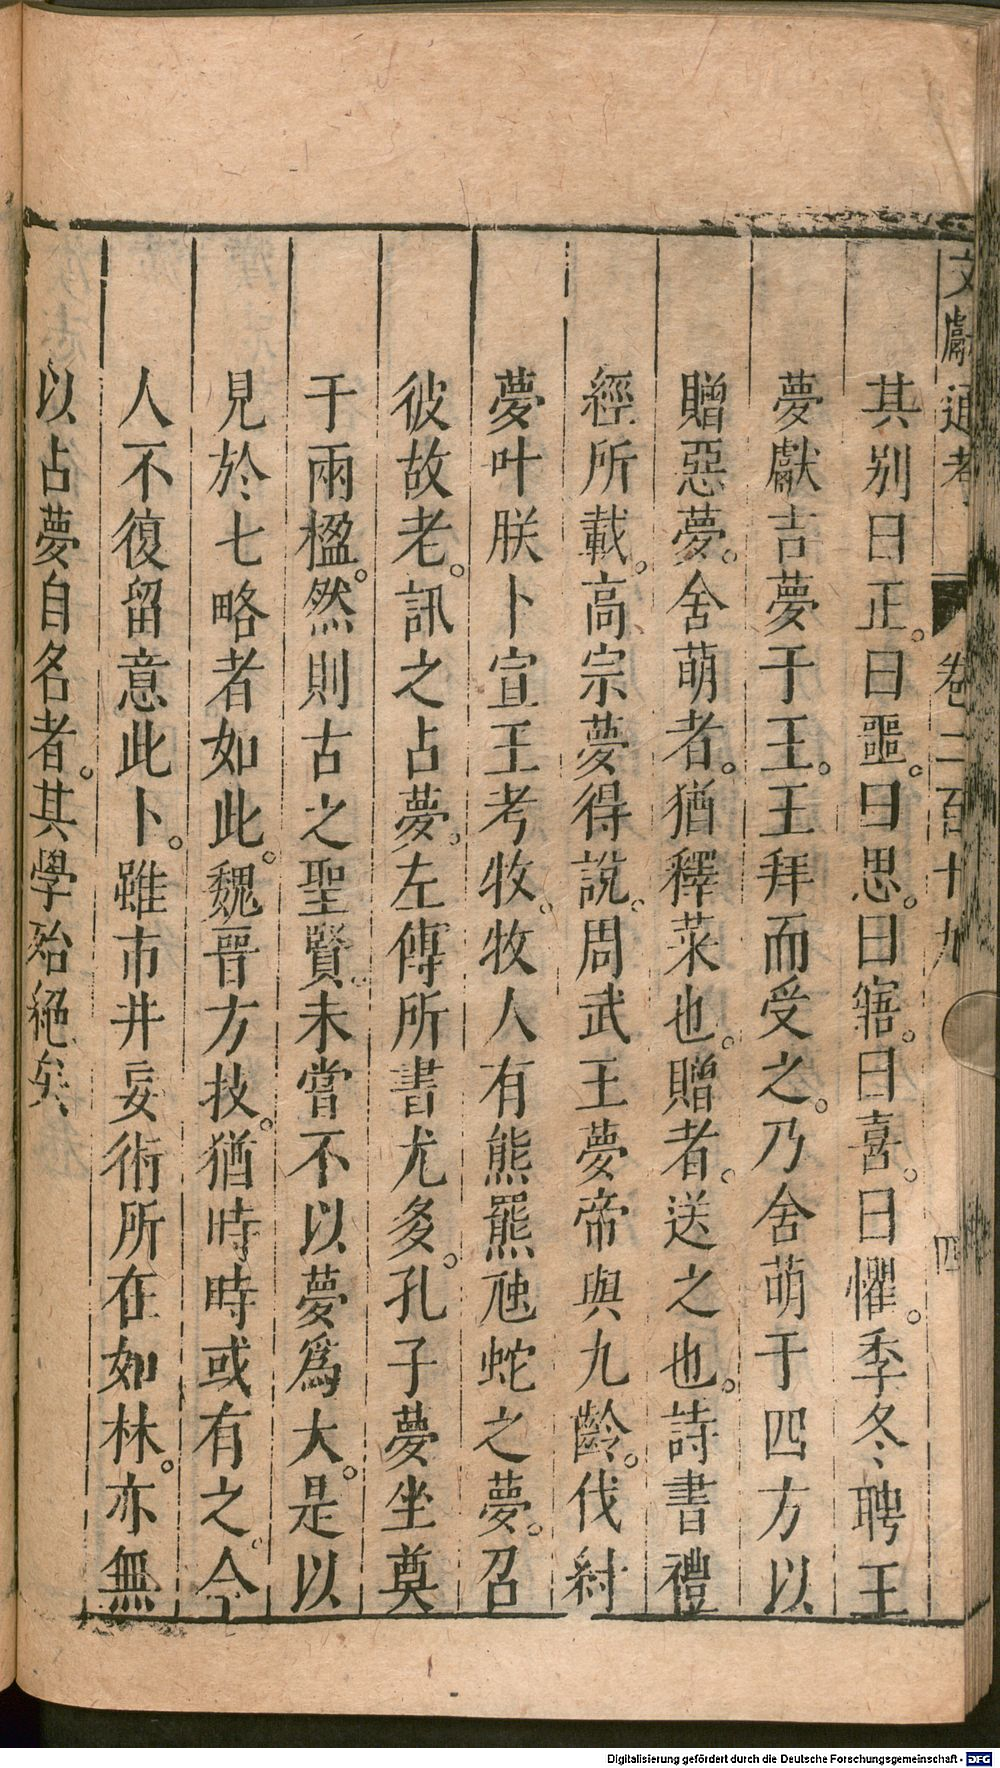 文獻通考 卷二百十九 四
其別曰正。曰噩。曰思。曰寤。曰喜。曰懼。季冬聘王
夢獻吉夢于王。王拜而受之。乃舍萌于四方以
贈惡夢。舍萌者。猶釋菜也。贈者。送之也。詩書禮
經所載。高宗夢得說。周武王夢帝與九齡。伐紂
夢叶朕卜宣王考牧。牧人有熊羆虺蛇之夢。召
彼故老。訊之占夢。左傳所書尤多。孔子夢坐奠
于兩楹。然則古之聖賢。未嘗不以夢爲大。是以
見於七略者如此。魏晉方技。猶時時或有之。今
人不復留意此卜。雖市井妄術所在如林。亦無
以占夢自名者。其學殆絕矣
Digitalisierung gefördert durch die Deutsche Forschungsgemeinschaft - DFG